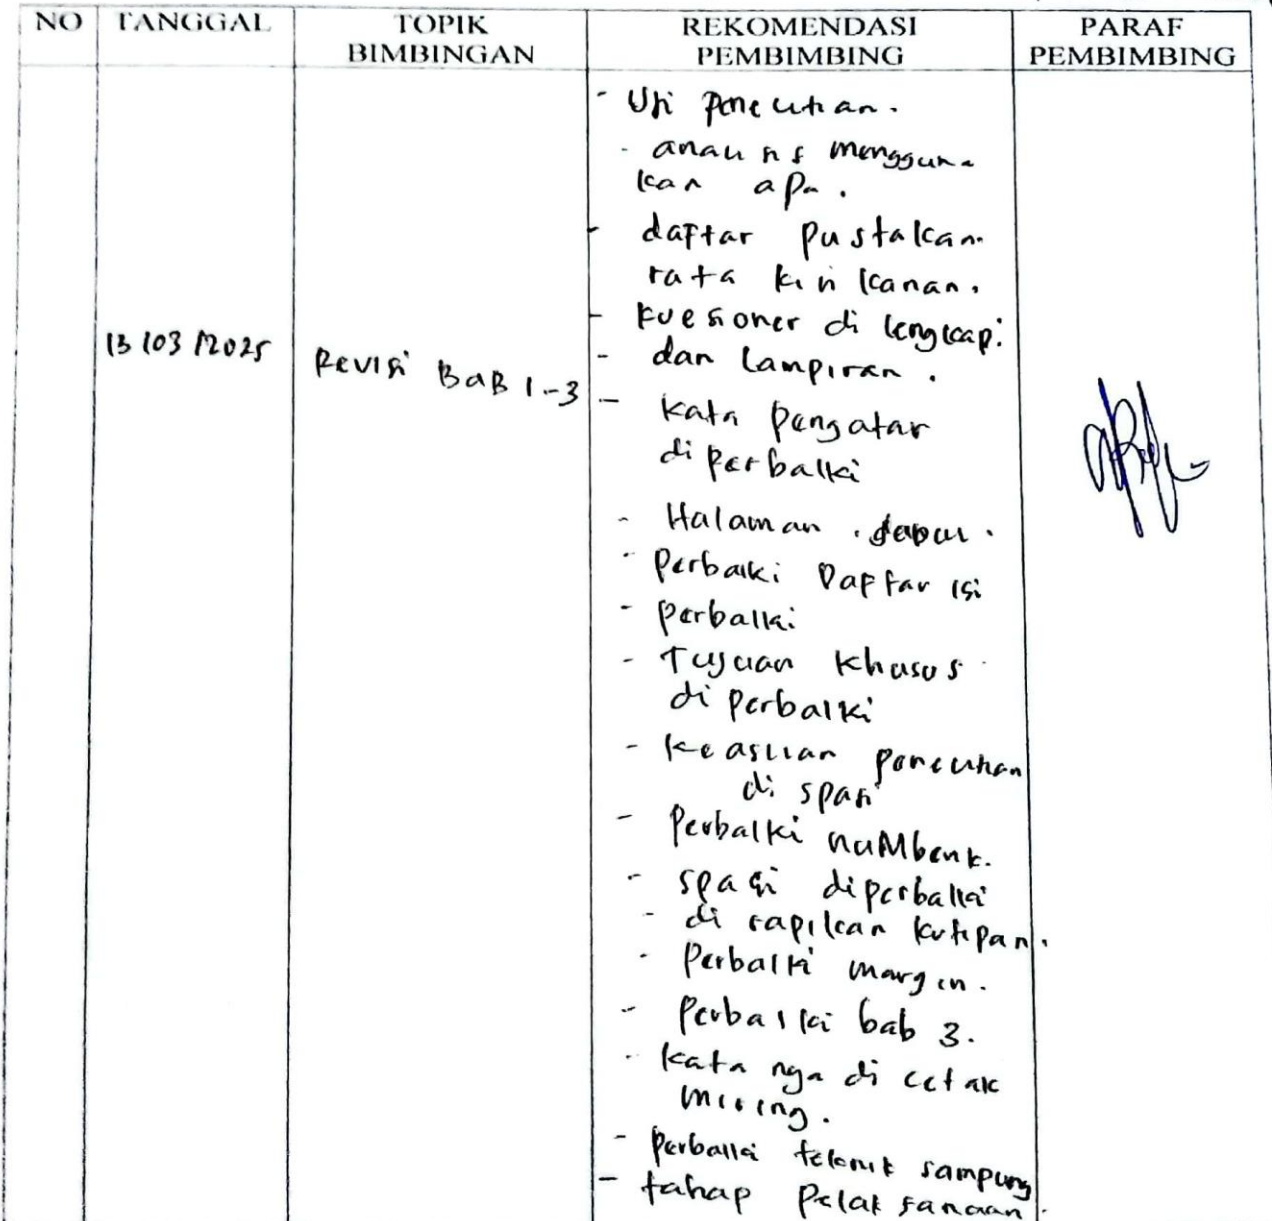 NO TANGGAL TOPIK BIMBINGAN REKOMENDASI PEMBIMBING PARAF PEMBIMBING
13/03/2025
Revisi BaB 1-3
- Uji penelitian.
- analisis mengguna
kan apa.
- daftar pustakan
rata kiri kanan.
- kuesioner di lengkapi
- dan lampiran.
- kata pengatar
di perbaiki
- Halaman
- Perbaiki Daftar isi
- perbaiki
- Tujuan Khusus
di perbaiki
- keaslian penelitian
di spasi
- Perbaiki
- spasi diperbaiki
- di rapikan kutipan.
- Perbaiki margin.
- Perbaiki bab 3.
- kata nya di cetak
miring.
- perbaiki teknik sampling
- tahap pelaksanaan.